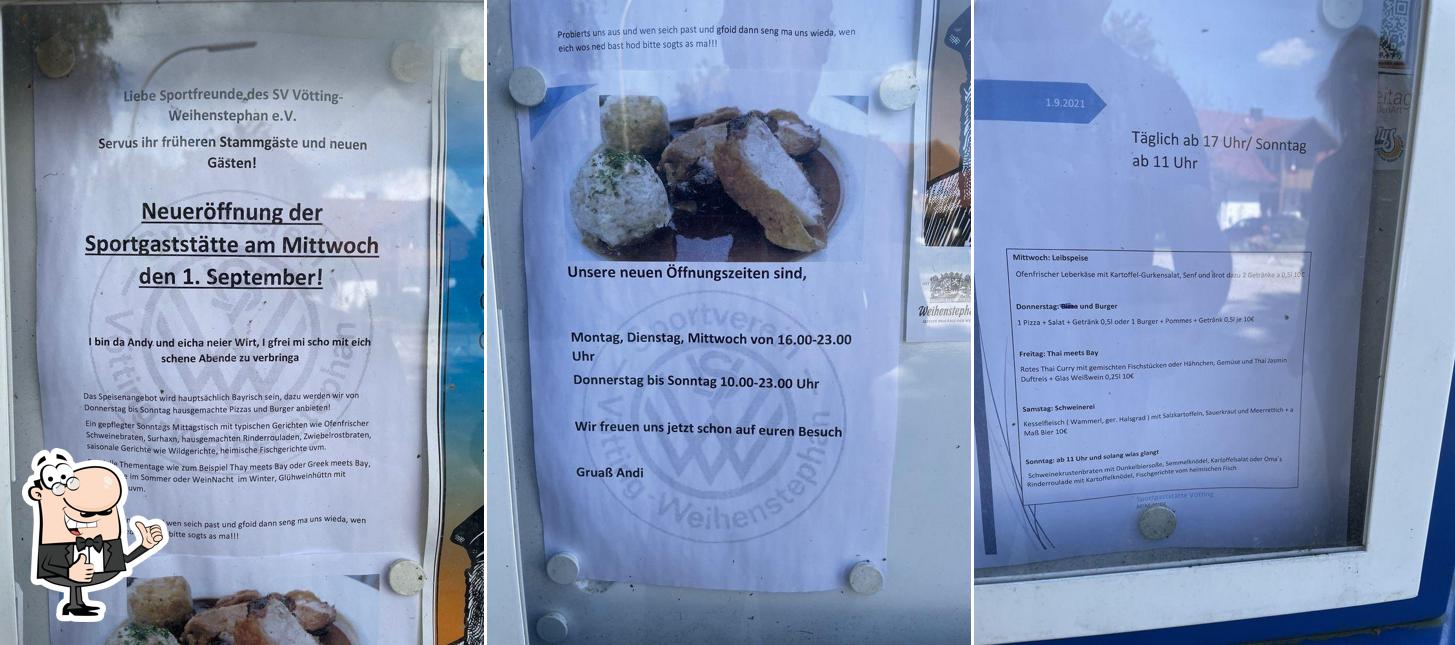 Liebe Sportfreunde des SV Vötting-
Weihenstephan e.V.
Servus ihr früheren Stammgäste und neuen
Gästen!
Neueröffnung der
Sportgaststätte am Mittwoch
den 1. September!
I bin da Andy und eicha neier Wirt, I gfrei mi scho mit eich
schene Abende zu verbringa
Das Speisenangebot wird hauptsächlich Bayrisch sein, dazu werden wir von
Donnerstag bis Sonntag hausgemachte Pizzas und Burger anbieten!
Ein gepflegter Sonntags Mittagstisch mit typischen Gerichten wie Ofenfrischer
Schweinebraten, Surhaxn, hausgemachten Rinderrouladen, Zwiebelrostbraten,
saisonale Gerichte wie Wildgerichte, heimische Fischgerichte uvm.
Thementage wie zum Beispiel Thay meets Bay oder Greek meets Bay,
im Sommer oder WeinNacht im Winter, Glühweinhüttn mit
uvm.
wen seich past und gfoid dann seng ma uns wieda, wen
bitte sogts as ma!!!
Probierts uns aus und wen seich past und gfoid dann seng ma uns wieda, wen
eich wos ned bast hod bitte sogts as ma!!!
Unsere neuen Öffnungszeiten sind,
Montag, Dienstag, Mittwoch von 16.00-23.00
Uhr
Donnerstag bis Sonntag 10.00-23.00 Uhr
Wir freuen uns jetzt schon auf euren Besuch
Gruaß Andi
Sportverein
Vötting-Weihenstephan
Weihenstephan
1.9.2021
Täglich ab 17 Uhr/ Sonntag
ab 11 Uhr
Mittwoch: Leibspeise
Ofenfrischer Leberkäse mit Kartoffel-Gurkensalat, Senf und Brot dazu 2 Getränke a 0,5l 10€
Donnerstag: und Burger
1 Pizza + Salat + Getränk 0,5l oder 1 Burger + Pommes + Getränk 0,5l je 10€
Freitag: Thai meets Bay
Rotes Thai Curry mit gemischten Fischstücken oder Hähnchen, Gemüse und Thai Jasmin
Duftreis + Glas Weißwein 0,25l 10€
Samstag: Schweinerei
Kesselfleisch ( Wammerl, ger. Halsgrad ) mit Salzkartoffeln, Sauerkraut und Meerrettich + a
Maß Bier 10€
Sonntag: ab 11 Uhr und solang wias glangt
Schweinekrustenbraten mit Dunkelbiersoße, Semmelknödel, Kartoffelsalat oder Oma's
Rinderroulade mit Kartoffelknödel, Fischgerichte vom heimischen Fisch
Sportgaststätte Vötting